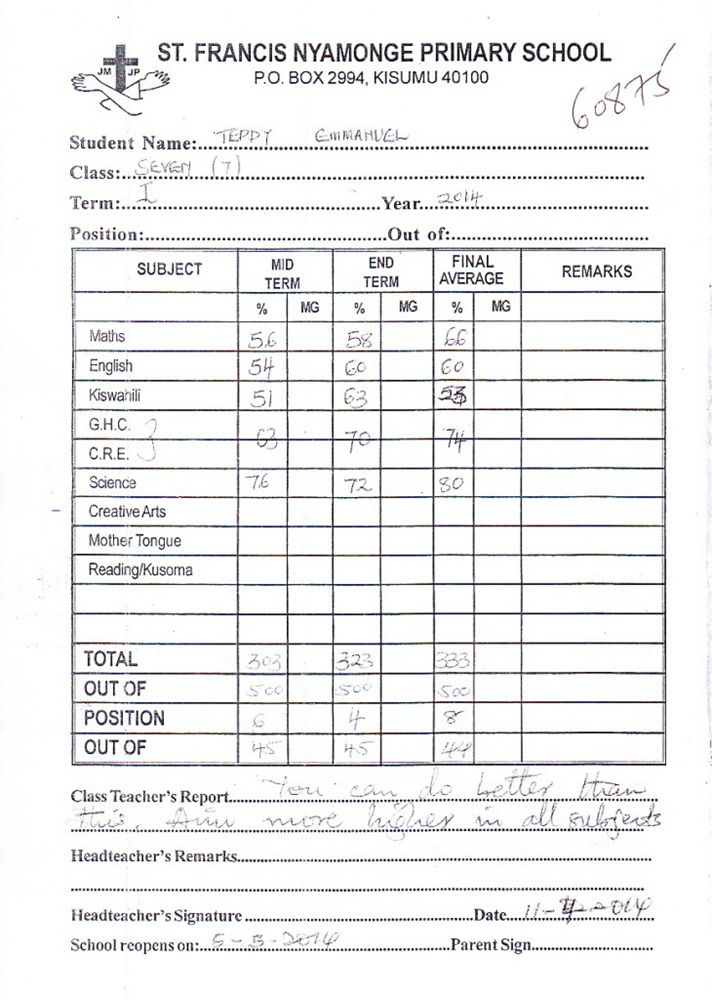 JM JP
ST. FRANCIS NYAMONGE PRIMARY SCHOOL
P.O. BOX 2994, KISUMU 40100
60875
Student Name:....TEDDY EMMANUEL
Class:..SEVEN (7)
Term:..I Year...2014
Position: Out of:
SUBJECT MID TERM END TERM FINAL AVERAGE REMARKS
% MG % MG % MG
Maths 56 58 66
English 54 60 60
Kiswahili 51 63 53
G.H.C. } 63 70 74
C.R.E.
Science 76 72 80
Creative Arts
Mother Tongue
Reading/Kusoma
TOTAL 303 323 333
OUT OF 500 500 500
POSITION 6 4 8
OUT OF 45 45 44
Class Teacher's Report....You can do better than
this. Aim more higher in all subjects
Headteacher's Remarks
Headteacher's Signature Date...11-2014
School reopens on:..5-3-2014 Parent Sign